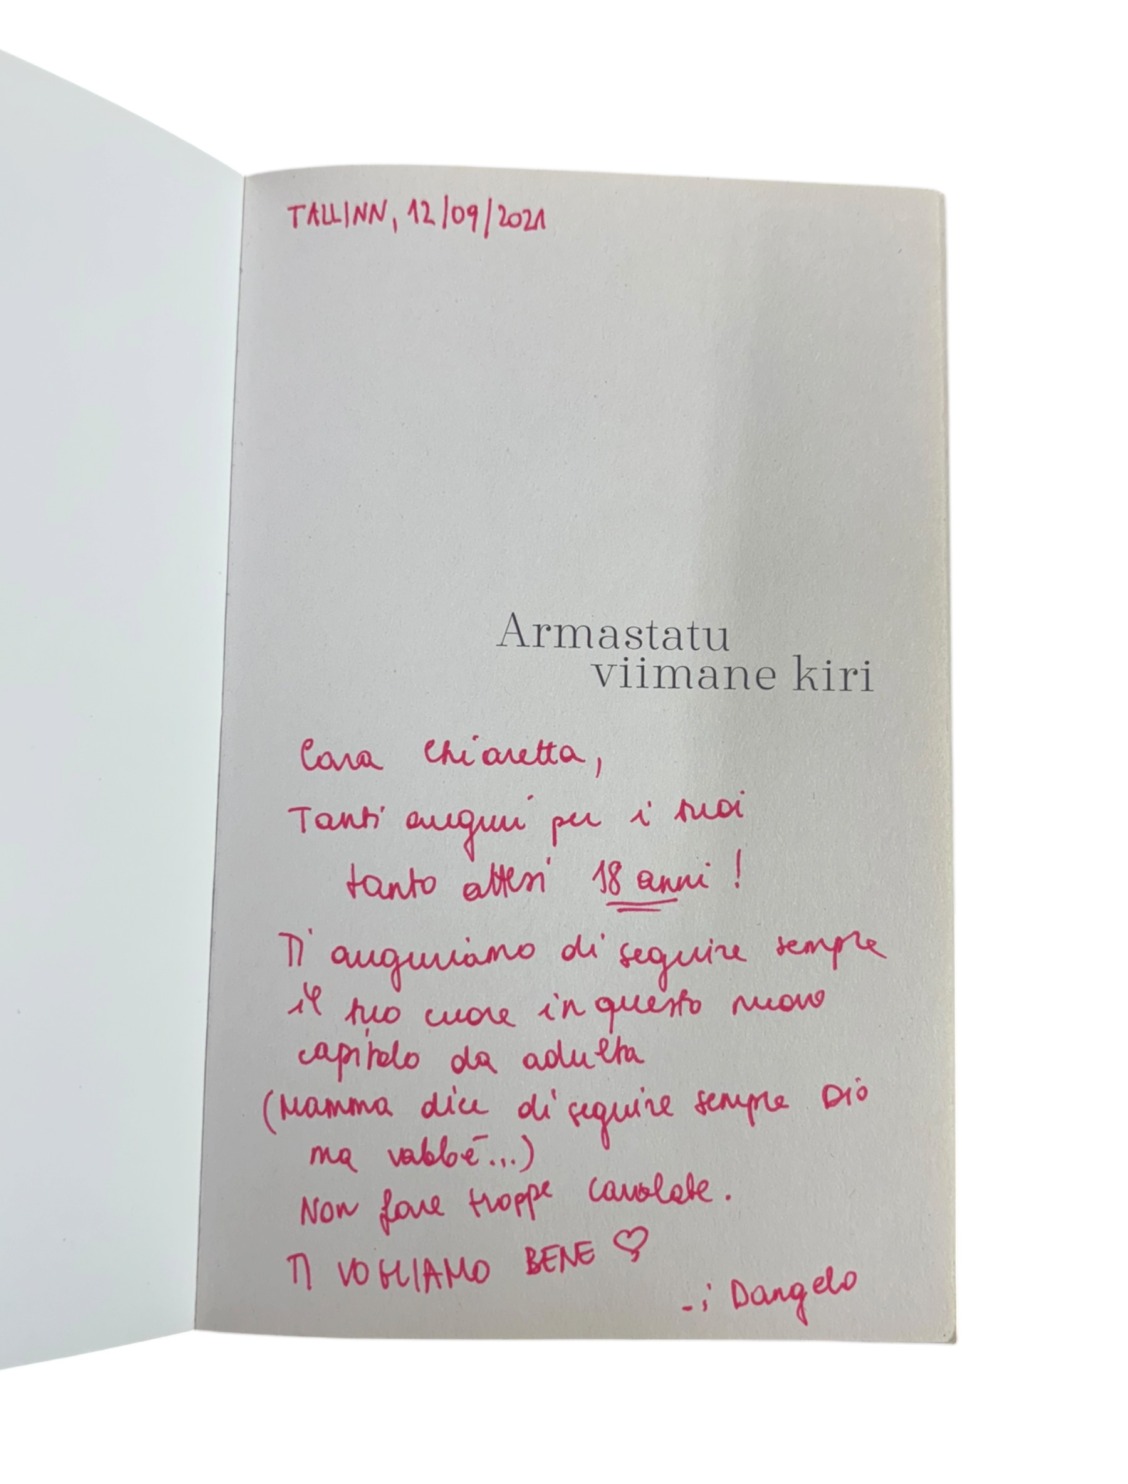 TALLINN, 12/09/2021
Armastatu
viimane kiri
Cara Chiaretta,
Tanti auguri per i tuoi
tanto attesi 18 anni!
Ti auguriamo di seguire sempre
il tuo cuore in questo nuovo
capitolo da adulta
(Mamma dice di seguire sempre DIO
ma vabbè...)
Non fare troppe cavolate.
TI VOGLIAMO BENE ♡
- i Dangelo